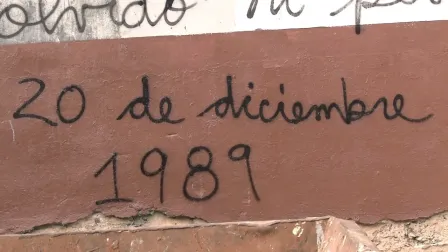 olvido ni
20 de diciembre
1989